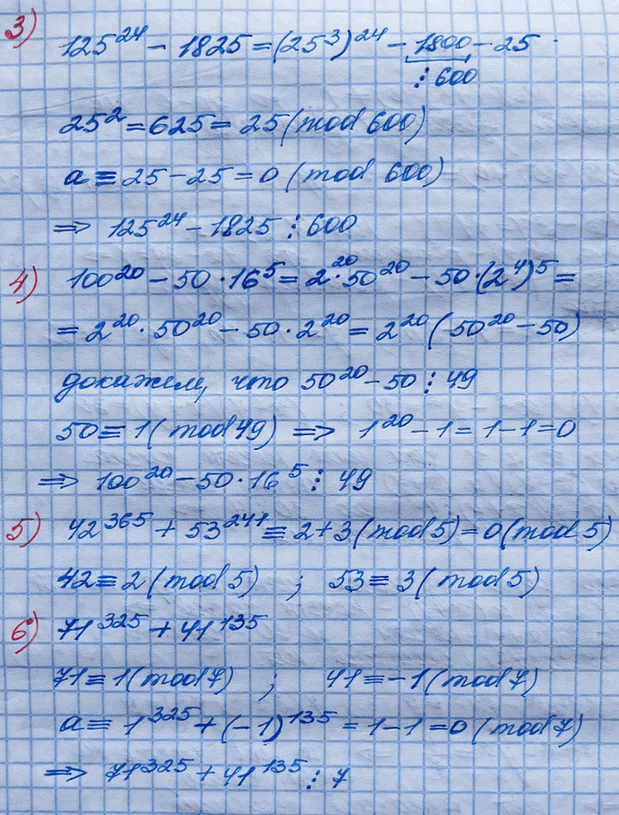 3) 125²⁴ – 1825 = (25³)²⁴ – 1800 – 25
⋮ 600
25² = 625 = 25 (mod 600)
a ≡ 25 – 25 = 0 (mod 600)
⇒ 125²⁴ – 1825 ⋮ 600
4) 100²⁰ – 50 · 16⁵ = 2²⁰ · 50²⁰ – 50 · (2⁴)⁵ =
= 2²⁰ · 50²⁰ – 50 · 2²⁰ = 2²⁰ (50²⁰ – 50)
докажем, что 50²⁰ – 50 ⋮ 49
50 ≡ 1 (mod 49) ⇒ 1²⁰ – 1 = 1 – 1 = 0
⇒ 100²⁰ – 50 · 16⁵ ⋮ 49
5) 42³⁶⁵ + 53²⁴¹ ≡ 2 + 3 (mod 5) = 0 (mod 5)
42 ≡ 2 (mod 5) ; 53 ≡ 3 (mod 5)
6) 71³²⁵ + 41¹³⁵
71 ≡ 1 (mod 7) ; 41 ≡ –1 (mod 7)
a ≡ 1³²⁵ + (–1)¹³⁵ = 1 – 1 = 0 (mod 7)
⇒ 71³²⁵ + 41¹³⁵ ⋮ 7